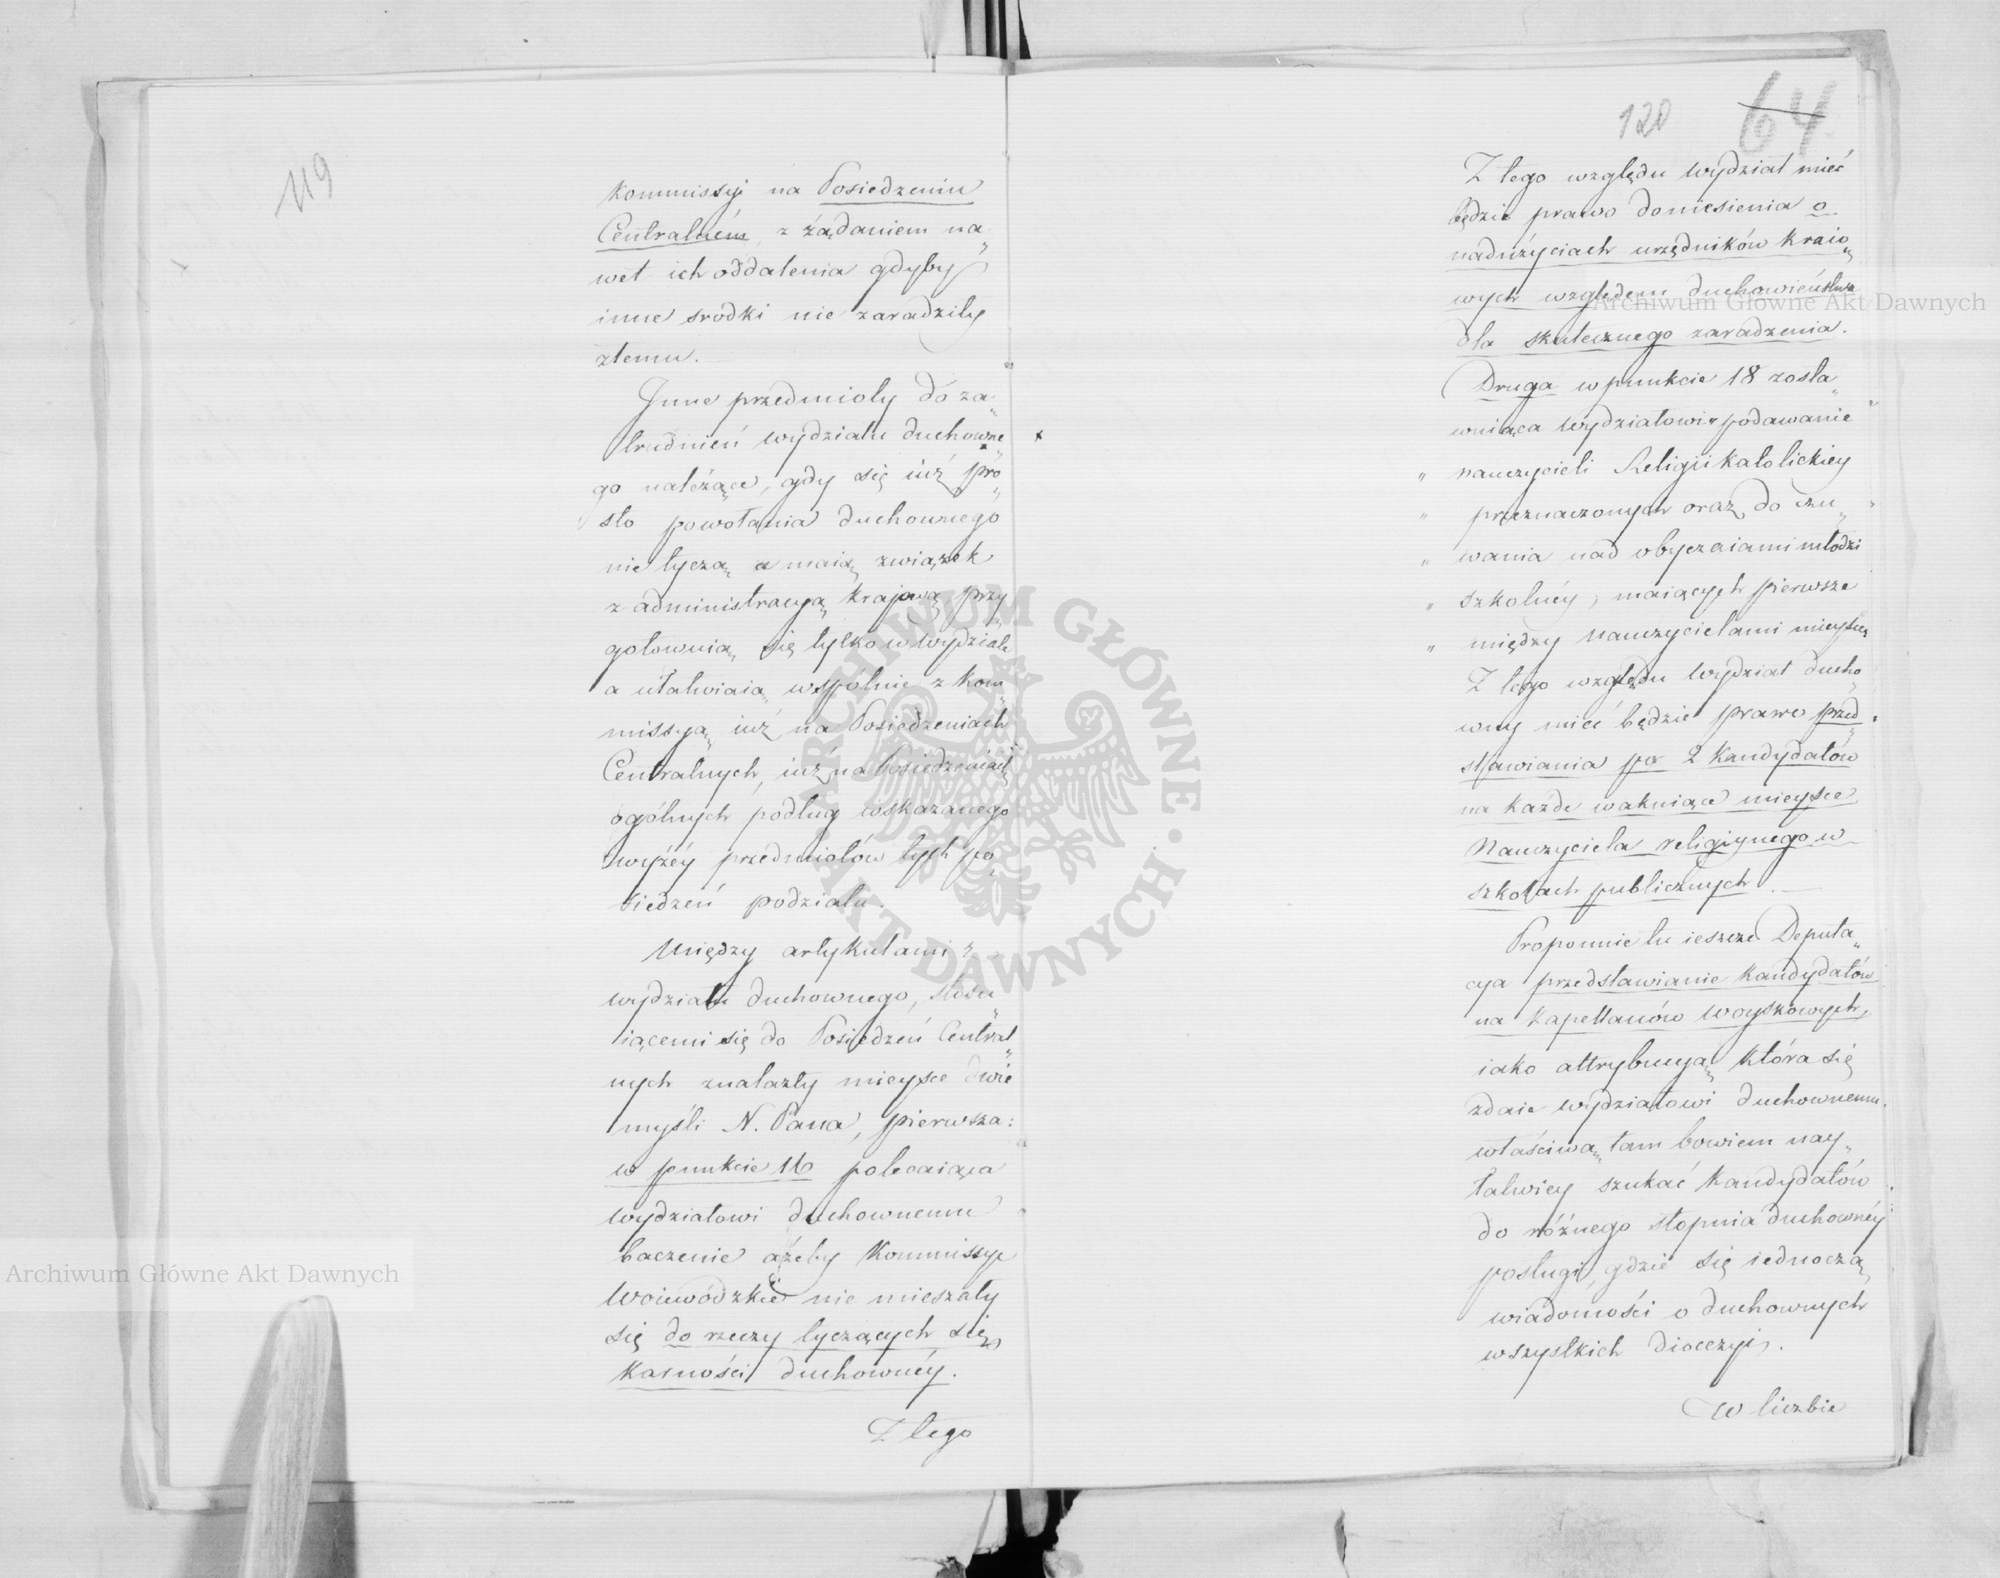 119
Kommissyi na Posiedzeniu
Centralném z żądaniem na„
wet ich oddalenia gdyby
inne srodki nie zaradziły
złemu.
Inne przedmioty do za„
trudnień wydziału duchowne„
go należące, gdy się iuż pro„
sto powołania duchownego
nie tyczą a maią związek
z administracyą krajową przy„
gotowuią się tylko w wydziale
a ułatwiaią wspólnie z Kom„
missyą iuż na Posiedzeniach
Centralnych, iuż na Posiedzeniach
ogólnych podług wskazanego
wyżéy przedmiotów tych po„
siedzeń podziału.
Między artykułami
wydziału duchownego, stosu„
iącemi się do Posiedzeń Central„
nych znalazły mieysce dwie
myśli N. Pana, pierwsza:
w punkcie 16 polecaiąca
wydziałowi duchownemu
baczenie ażeby Kommissye
Woiewódzkie nie mieszały
się do rzeczy tyczących się
Karności duchownéy.
Z tego
120 64
Z tego względu Wydział mieć
będzie prawo doniesienia o
nadużyciach urzędników kraio„
wych względem duchowieństwa
dla skutecznego zaradzenia.
Druga w punkcie 18 zosta„
wuiąca Wydziałowi „podawanie„
„ nauczycieli Religii katolickiey
„ przeznaczonych oraz do czu„ „
„ wania nad obyczaiami młodzi
„ szkolnéy, maiących pierwsze
„ między nauczycielami mieysce
Z tego względu Wydział ducho„
wny mieć będzie prawo przed„
stawiania po 2 Kandydatów
na każde wakuiące mieysce
Nauczyciela religiynego w
szkołach publicznych.
Proponuie tu ieszcze Deputa„
cya przedstawianie Kandydatów
na Kapellanów Woyskowych,
iako attrybucyą, która się
zdaie wydziałowi duchownemu
właściwą, tam bowiem nay„
łatwiey szukać Kandydatów
do różnego stopnia duchownéy
posługi, gdzie się iednoczą
wiadomości o duchownych
wszystkich diecezyi.
W liczbie
Archiwum Główne Akt Dawnych
Archiwum Główne Akt Dawnych
ARCHIWUM GŁÓWNE · AKT DAWNYCH ·